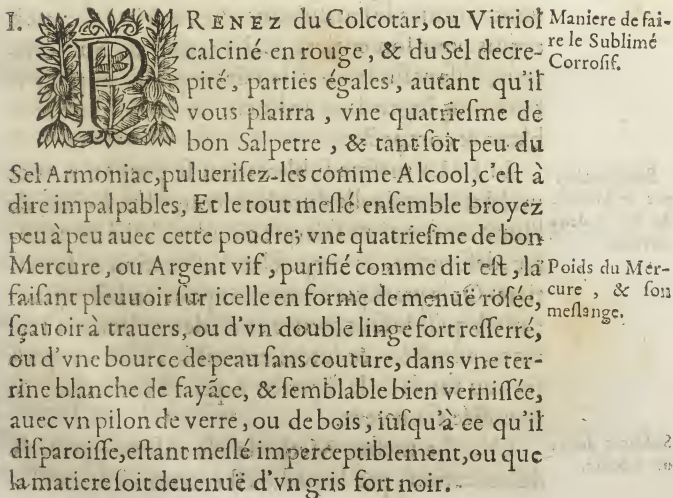 I.
PRENEZ du Colcotar, ou Vitriol
calciné en rouge, & du Sel decre-
pité, parties égales, autant qu'il
vous plairra, vne quatriesme de
bon Salpetre, & tant soit peu du
Sel Armoniac, puluerisez-les comme Alcool, c'est à
dire impalpables, Et le tout meslé ensemble broyez
peu à peu auec cette poudre; vne quatriesme de bon
Mercure, ou Argent vif, purifié comme dit est, la
faisant pleuuoir sur icelle en forme de menuë rosée,
sçauoir à trauers, ou d'vn double linge fort resserré,
ou d'vne bource de peau sans couture, dans vne ter-
rine blanche de fayāce, & semblable bien vernissée,
auec vn pilon de verre, ou de bois, iusqu'à ce qu'il
disparoisse, estant meslé imperceptiblement, ou que
la matiere soit deuenuë d'vn gris fort noir.
Maniere de fai-
re le Sublimé
Corrosif.
Poids du Mer-
cure, & son
meslange.